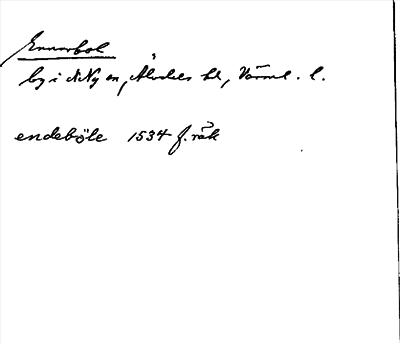 Ennarbol
by i N Ny sn, Älvdals hd, Värml. l.
endeböle 1534 f. räk